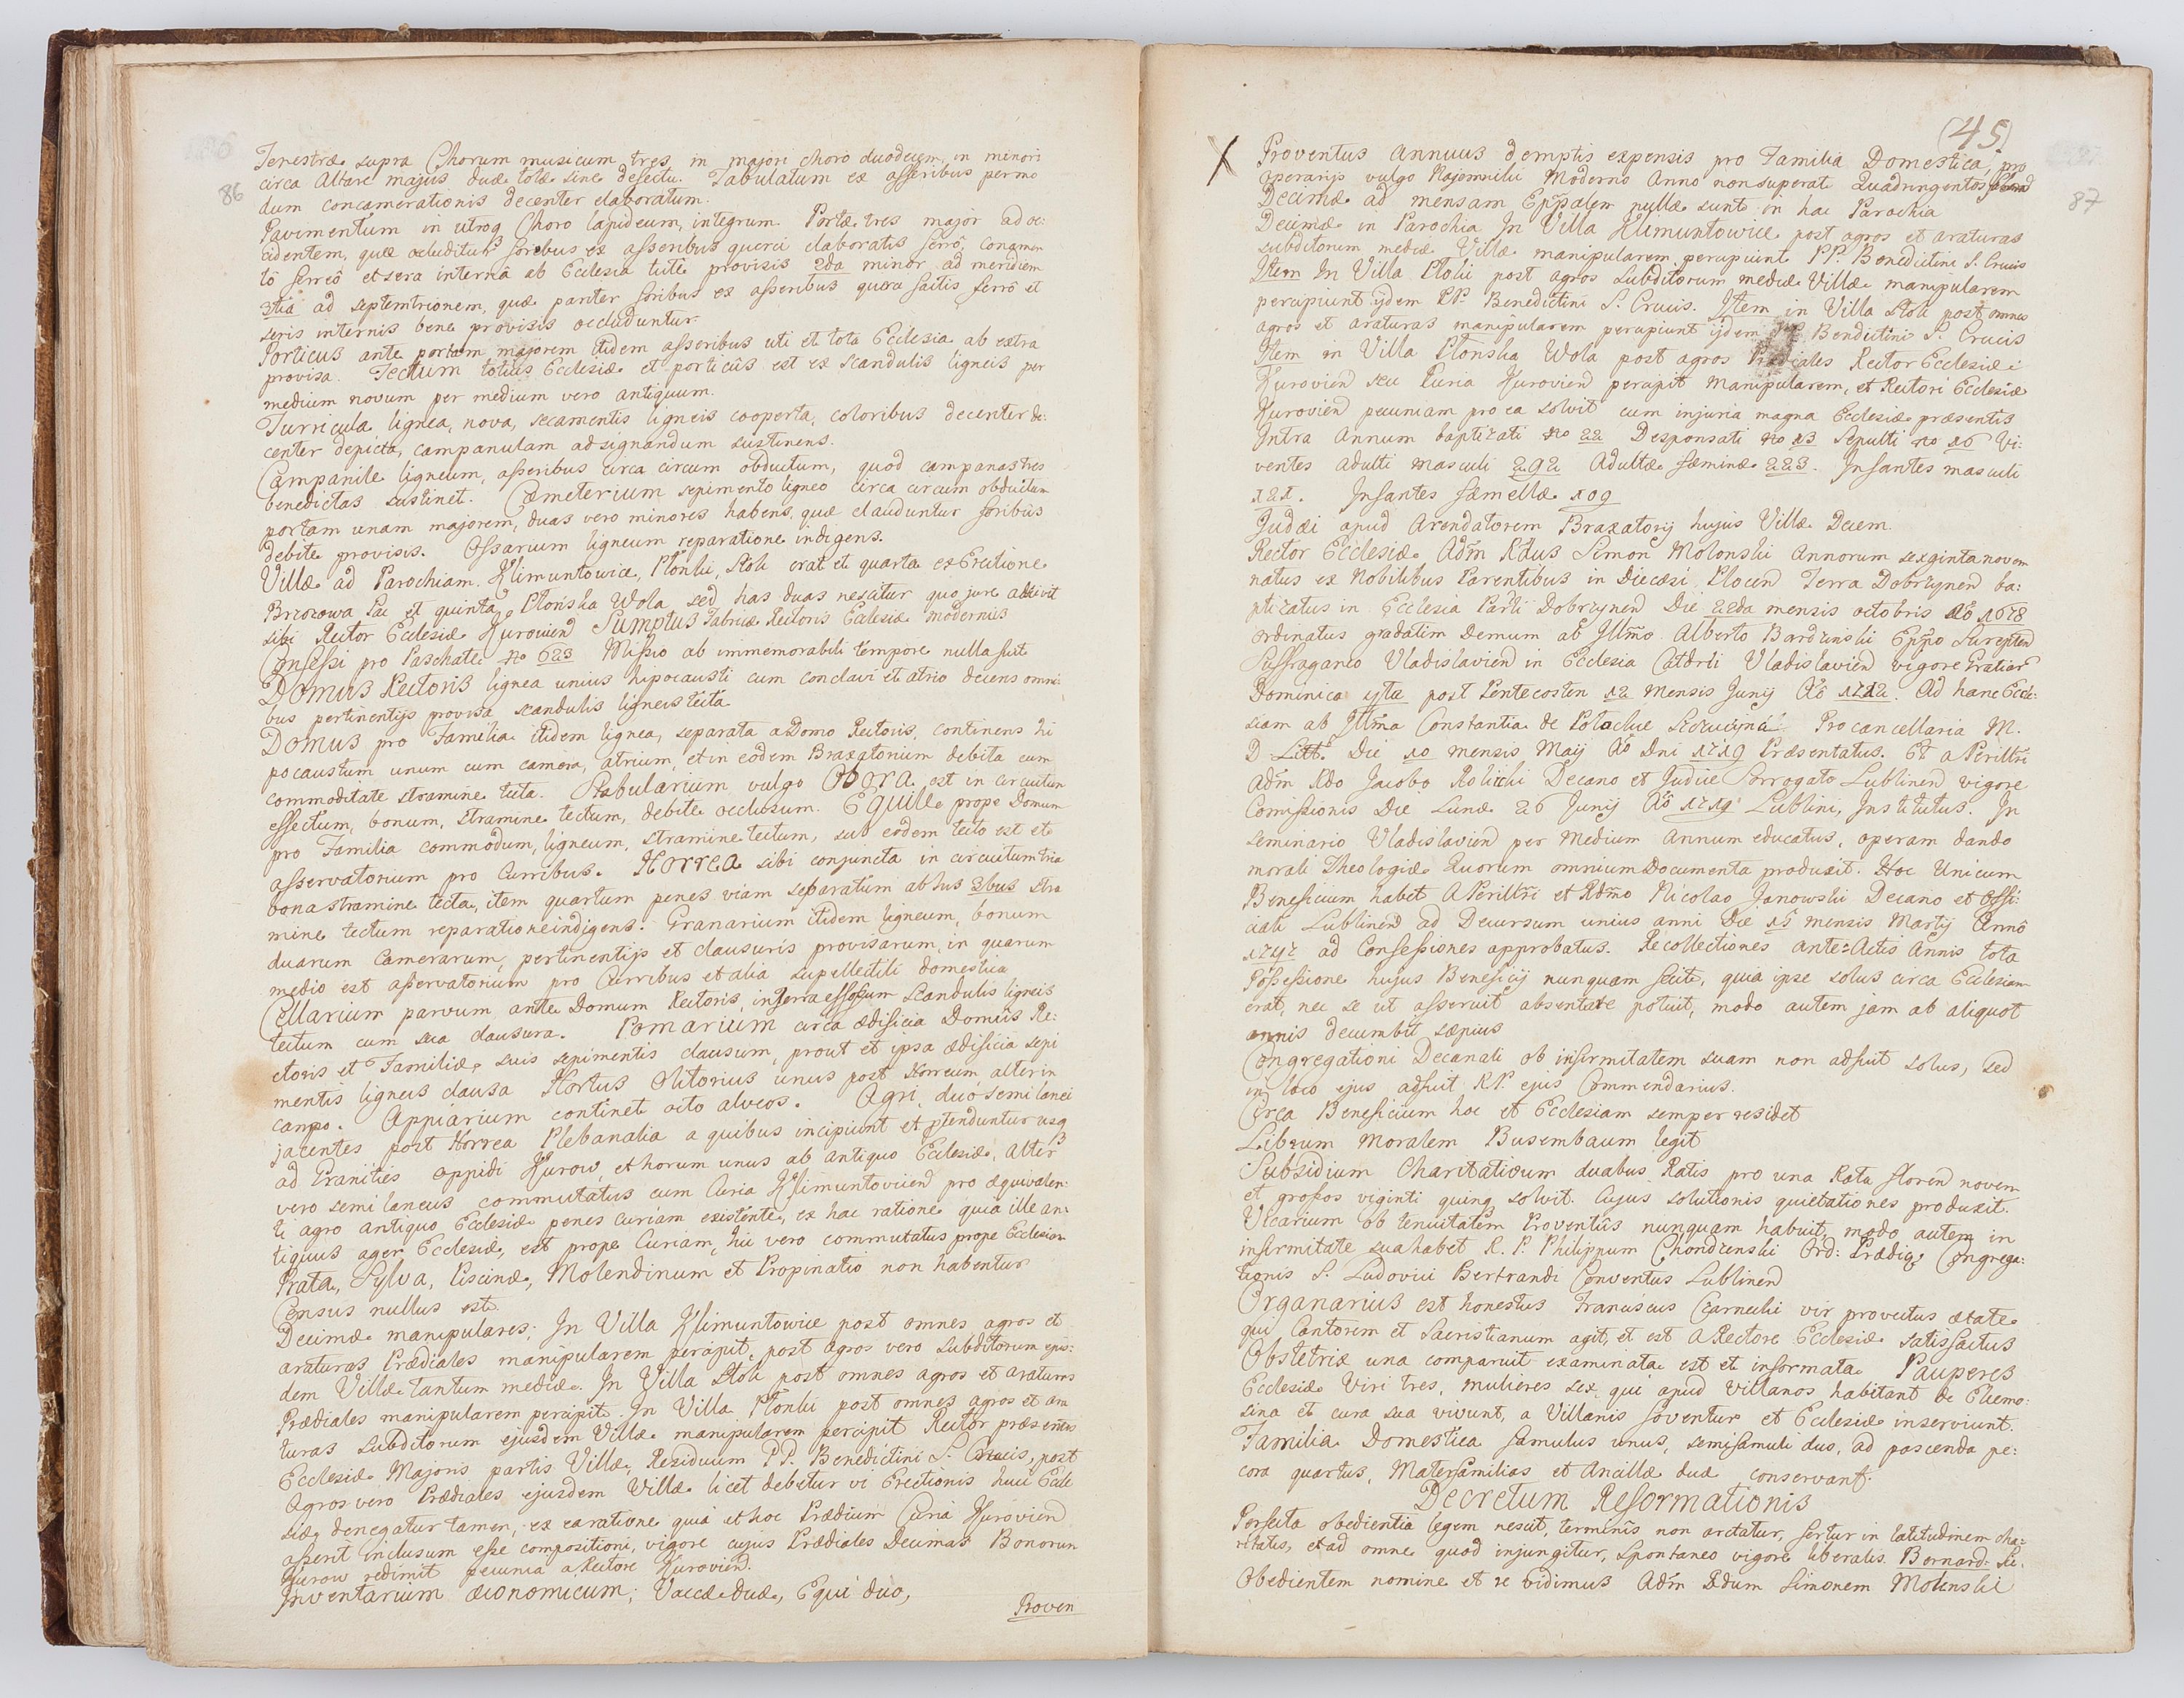 86
Fenestræ supra Chorum musicum tres in majori choro duodecim, in minori
circa Altare majus duæ totæ sine defectu. Tabulatum ex asseribus per mo
dum concamerationis decenter elaboratum.
Pavimentum in utroq Choro lapideum, integrum. Portæ tres major ad oc:
cidentem, quæ occluditur foribus ex asseribus querci elaboratis ferrô,
tô ferreô et sera interna ab Ecclesia tutè provisis 2da minor ad meridiem
3tia ad septemtrionem, quæ pariter foribus ex asseribus ferrô et
seris internis bene provisis occluduntur.
Porticus ante portam majorem itidem asseribus uti et tota Ecclesia ab extra
provisa. Tectum totius Ecclesiæ et porticûs est ex scandulis ligneis per
medium novum per medium vero antiquum.
Turricula lignea, nova, secamentis ligneis cooperta, coloribus decenter de:
center depicta, campanulam ad signandum sustinens.
Campanile ligneum, asseribus circa circum obductum, quod campanas tres
benedictas sustinet. Cæmeterium sepimento ligneo circa circum obductum
portam unam majorem, duas vero minores habens, quæ clauduntur foribus
debite provisis. Ossarium ligneum reparatione indigens.
Villæ ad Parochiam Klimuntowice, Płonki, Stok erat et quarta ex Erectione
Brzozowa Gać et quinta Płońska Wola sed has duas nescitur quo jure
sibi Rector Ecclesiæ Kurovien̄ Sumptus Fabricæ Rectoris Ecclesiæ modernus
Confessi pro Paschate No 623 Missio ab immemorabili tempore nulla fuit
Domus Rectoris lignea unius hipocausti cum conclavi et atrio decens omni
bus pertinentijs provisa scandulis ligneis tecta
Domus pro Familia itidem lignea, separata a Domo Rectoris, continens hi
pocaustum unum cum camera, atrium, et in eodem Braxatorium debita cum
commoditate stramine tecta. Stabularium vulgo Obora est in circuitum
effectum, bonum, stramine tectum, debite occlusum. Equile prope Domum
pro Familia commodum, ligneum, stramine tectum, sub eodem tecto est et
asservatorium pro Curribus. Horrea sibi conjuncta in circuitum tria
bona stramine tecta, item quartum penes viam separatum ab hus 3bus stra
mine tectum reparatione indigens. Granarium itidem ligneum, bonum
duarum Camerarum, pertinentijs et clausuris provisarum, in quarum
medio est asservatorium pro Curribus et alia supellectili domestica
Cellarium parvum ante Domum Rectoris in terra effossum Scandulis ligneis
tectum cum sua clausura. Pomarium circa ædificia Domûs Re:
ctoris et Familiæ, suis sepimentis clausum, prout et ipsa ædificia sepi
mentis ligneis clausa Hortus Olitorius unus post Horreum alter in
campo. Appiarium continet octo alveos. Agri, duo semi lanei
jacentes post Horrea Plebanalia a quibus incipiunt et ptenduntur usq
ad Granities oppidi Kurow, et horum unus ab antiquo Ecclesiæ, Alter
vero semi laneus commutatus cum Curia Klimuntovicien̄ pro æquivalen:
ti agro antiquo Ecclesiæ penes curiam existente, ex hac ratione quia ille an:
tiquus ager Ecclesiæ, est prope Curiam, hic vero commutatus prope Ecclesiam
Prata, Sylva, Piscinæ, Molendinum et Propinatio non habentur
Census nullus est.
Decimæ manipulares; In Villa Klimuntowice post omnes agros et
araturas Prædiales manipularem percipit, post agros vero Subditorum ejus:
dem Villæ tantum mediæ. In Villa Stok post omnes agros et araturas
Prædiales manipularem percipit. In Villa Płonki post omnes agros et ara
turas subditorum ejusdem Villæ manipularem percipit Rector præsentis
Ecclesiæ Majoris partis Villæ, Residuum PP. Benedictini S. Crucis, post
Agros vero Prædiales ejusdem Villæ licet debetur vi Erectionis huic Eccle
siæ denegatur tamen, ex ea ratione quia et hoc Prædium Curia Kurovien̄
asserit inclusum esse compositioni, vigore cujus Prædiales Decimas Bonorum
Kurow redimit pecunia a Rectore Kurovien̄.
Inventarium œconomicum; Vaccæ duæ, Equi duo,
Proven
(45)
87
X Proventus Annuus demptis expensis pro Familia Domestica, pro
operarijs vulgo Najemniki Moderno Anno non superat Quadringentos
Decimæ ad mensam Eppalem nullæ sunt in hac Parochia
Decimæ in Parochia In Villa Klimuntowice post agros et araturas
subditorum mediæ Villæ manipularem percipiunt PP. Benedictini S. Crucis
Item In Villa Płoki post agros Subditorum mediæ Villæ manipularem
percipiunt ijdem PP. Benedictini S. Crucis. Item in Villa Stok post omnes
agros et araturas manipularem percipiunt ijdem PP. Benedictini S. Crucis
Item in Villa Płonska Wola post agros Prædiales Rector Ecclesiæ
Kurovien̄ seu Curia Kurovien̄ percipit manipularem, et Rectori Ecclesiæ
Kurovien̄ pecuniam pro ea solvit cum injuria magna Ecclesiæ præsentis
Intra Annum baptizati No 22 Desponsati No 13 Sepulti No 16 Vi:
ventes adulti masculi 292 Adultæ fæminæ 223. Infantes masculi
121. Infantes fæmellæ 109
Judæi apud Arendatorem Braxatorij hujus Villæ Decem.
Rector Ecclesiæ Adm̄ R'dus Simon Molonski Annorum sexginta novem
natus ex Nobilibus Parentibus in Diæcæsi Plocen̄ Terra Dobrzynen̄ ba:
ptizatus in Ecclesia Par̄li Dobrzynen̄ Die 22da mensis octobris Aô 1678
ordinatus gradatim demum ab Ill̄mo Alberto Bardzinski Ep̄po
Suffraganeo Vladislavien̄ in Ecclesia Catdr̄li Vladislavien̄ vigore Gratiar
Dominica 4ta post Pentecosten 12 Mensis Junij Aô 1712. Ad hanc Eccle:
siam ab Ill̄ma Constantia de Potockie Szczucżyna Procancellaria M.
D Litt. Die 10 mensis Maij Aô Dni 1719 Præsentatus. Et a Perill̄ri
Adm̄ R̄do Jacobo Rolicki Decano et Judice Sorrogato Lublinen̄ vigore
Comissionis Die Lunæ 26 Junij Aô 1719 Lublini, Institutus. In
seminario Vladislavien̄ per Medium Annum educatus, operam dando
morali Theologiæ Quorum omnium Documenta produxit. Hoc Unicum
Beneficium habet A Perill̄ri et R̄dmo Nicolao Janowski Decano et Offi:
ciali Lublinen̄ ad Decursum unius anni Die 15 mensis Martij Annô
1747 ad Confessiones approbatus. Recollectiones ante=Actis Annis tota
Possessione hujus Beneficij nunquam fecit, quia ipse solus circa Ecclesiam
erat, nec se ut asseruit absentare potuit, modo autem jam ab aliquot
annis decumbit sæpius
Congregationi Decanali ob infirmitatem suam non adfuit solus, sed
in loco ejus adfuit R.P. ejus Commendarius.
Circa Beneficium hoc et Ecclesiam semper residet
Librum Moralem Busembaum legit
Subsidium Charitativum duabus Ratis pro una Rata floren̄ novem
et grossos viginti quinq solvit. Cujus solutionis quietationes produxit.
Vicarium ob tenuitatem Proventûs nunquam habuit, modo autem in
infirmitate sua habet R. P. Philippum Chondzenski Ord: Prædic. Congrega:
tionis S. Ludovici Bertrandi Conventus Lublinen̄
Organarius est honestus Franciscus Czarnecki vir provectus ætate
qui Cantorem et Sacristianum agit, et est a Rectore Ecclesiæ satisfactus
Obstetrix una comparuit examinata est et informata. Pauperes
Ecclesiæ Viri tres, mulieres sex, qui apud villanos habitant de Elemo:
sina et cura sua vivunt, a Villanis foventur et Ecclesiæ inserviunt.
Familia Domestica famulus unus, semifamuli duo, ad pascenda pe:
cora quartus, Materfamilias et Ancillæ duæ conservant.
Decretum Reformationis
Perfecta obedientia legem nescit, terminis non arctatur, fertur in latitudinem cha:
ritatis, et ad omne quod injungitur, spontaneo vigore liberalis. Bernard:
Obedientem nomine et re vidimus Adm̄ R̄dum Simonem Molenski